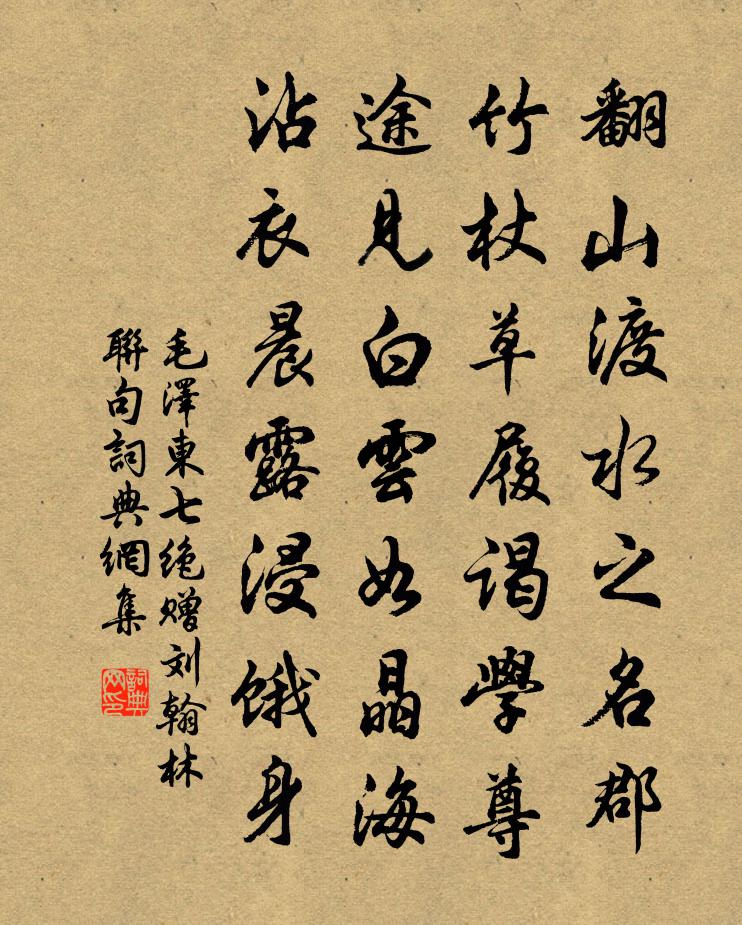 翻山渡水之名郡
竹杖草履谒學尊
途見白雲如晶海
沾衣晨露浸饿身
毛澤東七绝赠刘翰林
聯句詞典網集
詞典网印